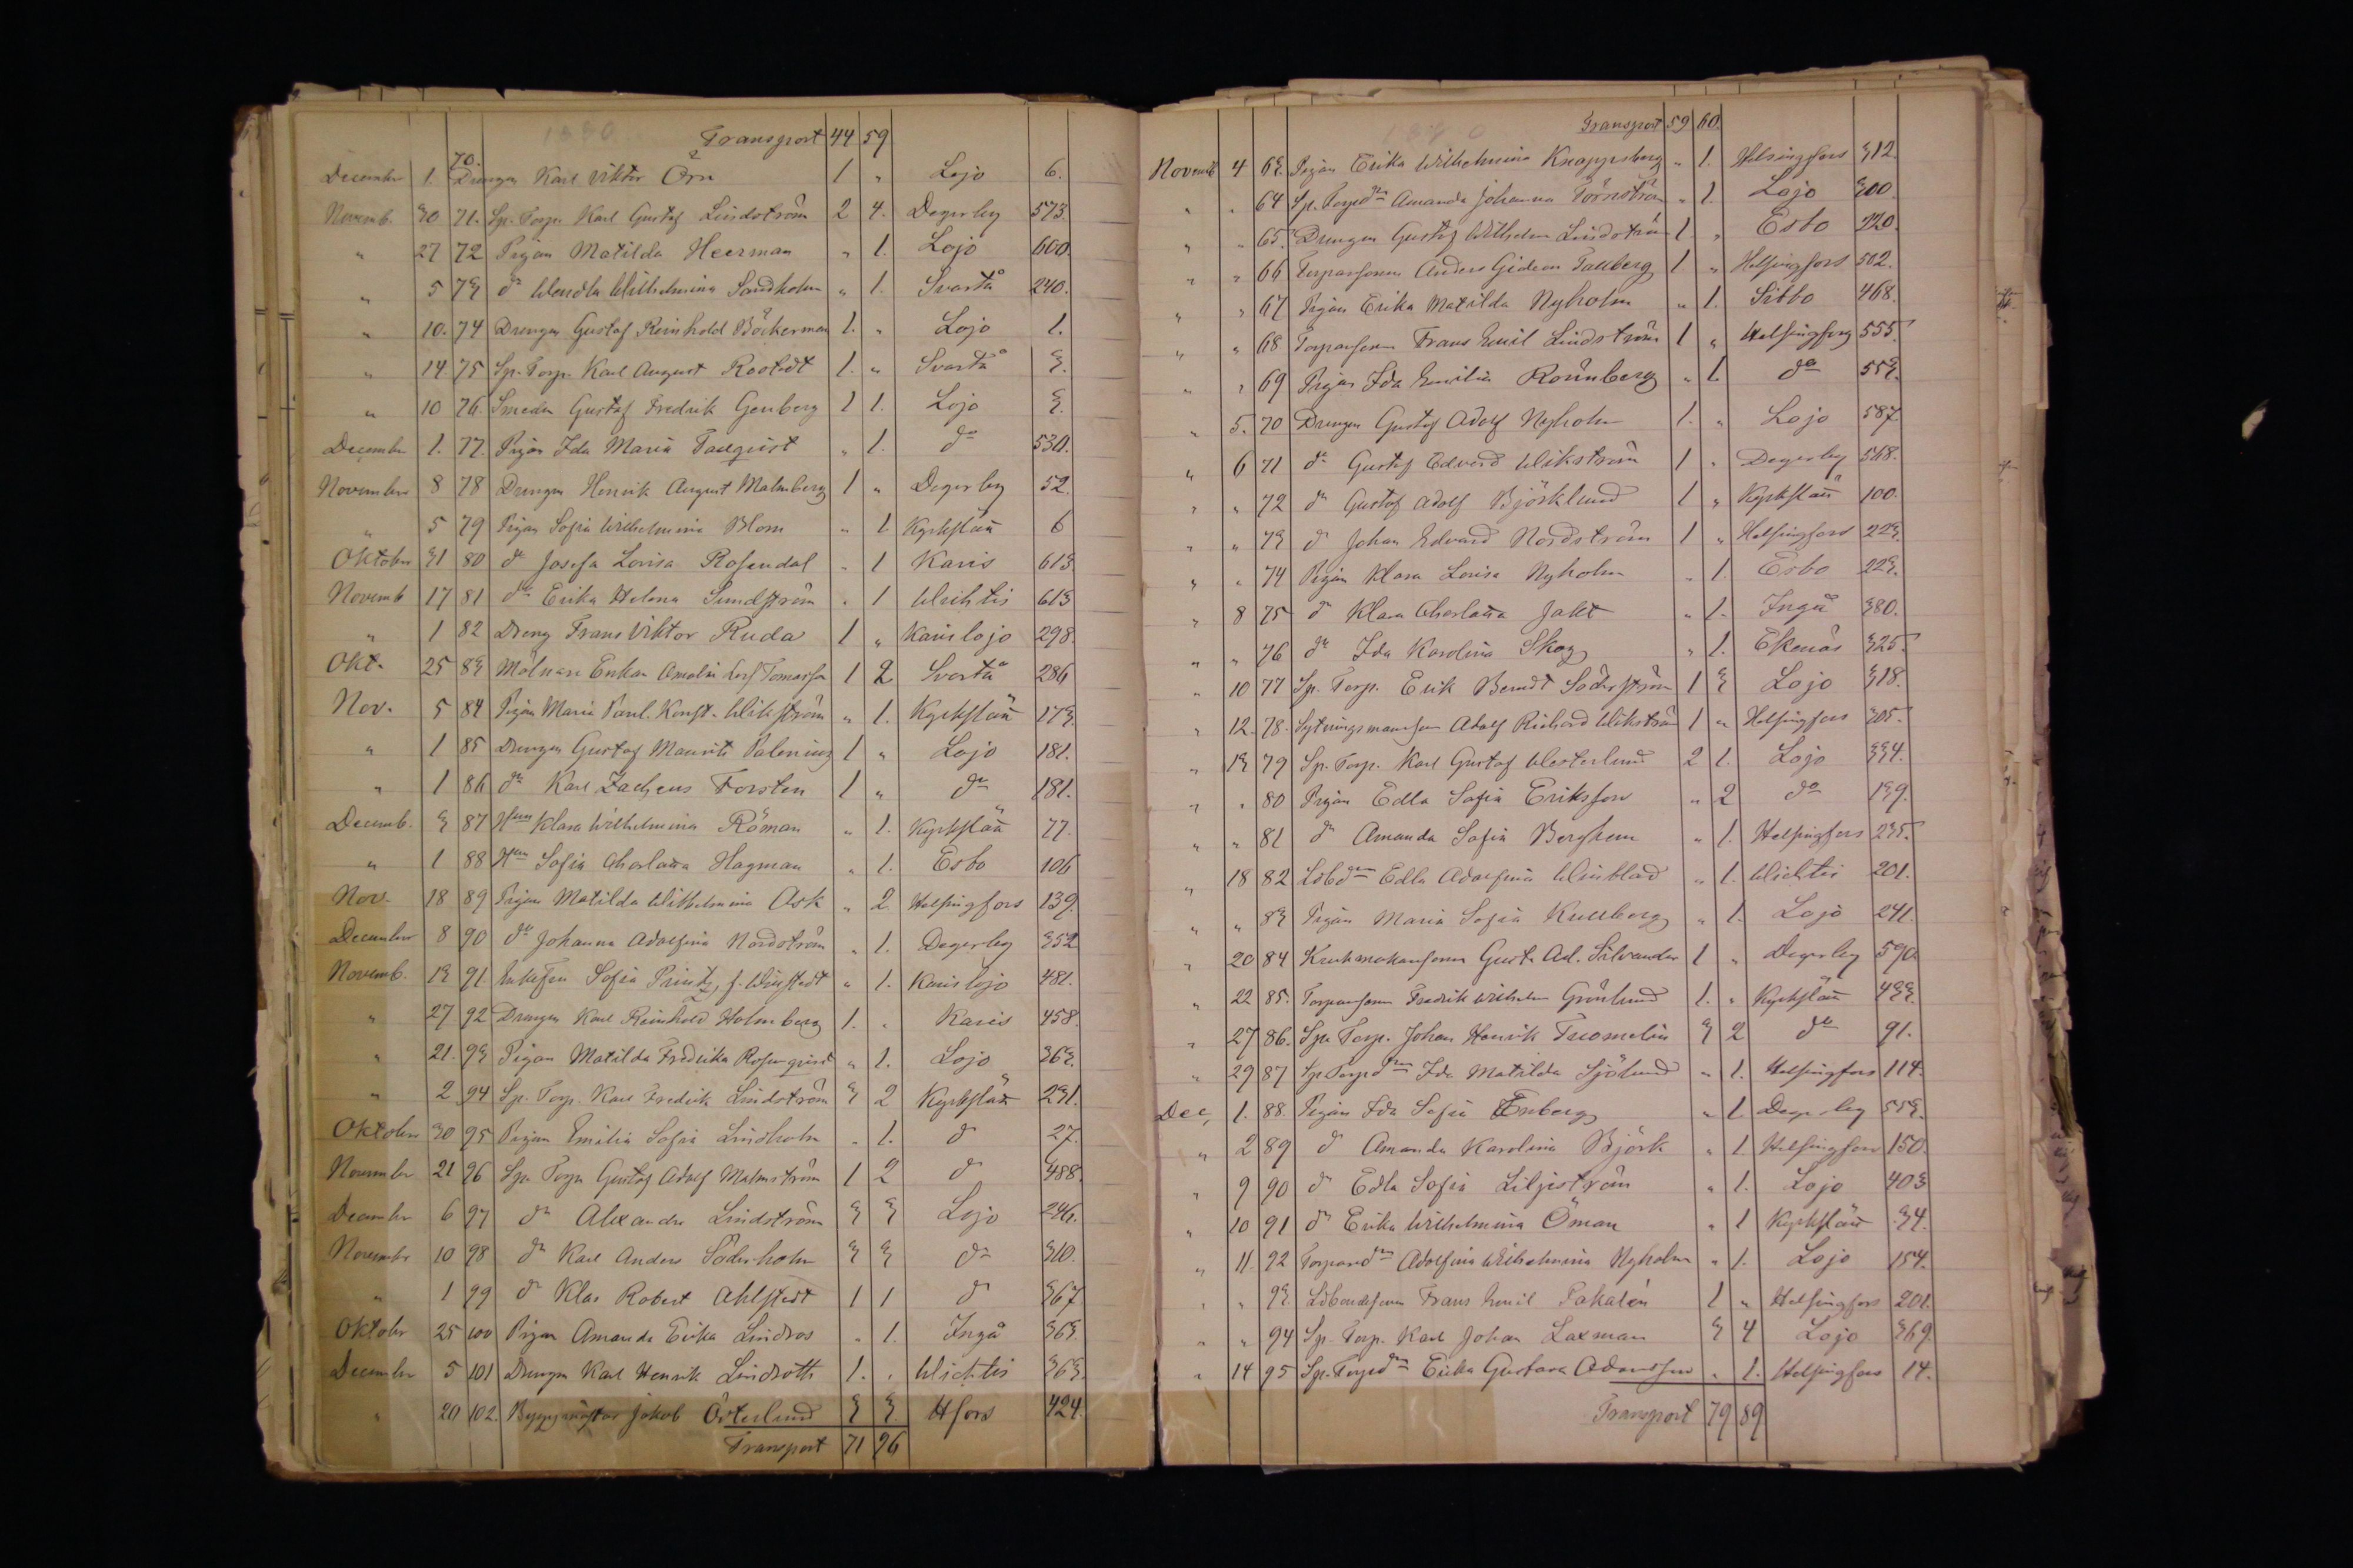 1880
Transport 44 59
December 1. 70. Drengen Karl Viktor Örn 1 " Lojo 6.
Novemb. 30 71. Sp. Torp. Karl Gustaf Lindström 2 4. Degerby 573.
" 27 72 Pigan Matilda Heerman " 1. Lojo 600.
" 5 73 do Wendla Wilhelmina Sandholm " 1. Svartå 240.
" 10. 74 Drengen Gustaf Reinhold Böckerman 1. " Lojo 1.
" 14 75 Sp. Torp. Karl August Rostedt 1. " Svartå 3.
" 10 76. Smeden Gustaf Fredrik Genberg 1 1. Lojo 3.
December 1. 77. Pigan Ida Maria Tallqvist " 1. do 530.
November 8 78 Drengen Henrik August Malmberg 1 " Degerby 52.
" 5 79 Pigan Sofia Wilhelmina Blom " 1 Kyrkslätt 6
Oktober 31 80 do Josefa Lovisa Rosendal " 1 Karis 613
Novemb 17 81 do Erika Helena Sundström " 1 Wichtis 613
" 1 82 Dreng Frans Viktor Ruda 1 " Karislojo 298.
Okt. 25 83 Enkan Amalia 1 2 Svartå 286
Nov. 5 84 Pigan Maria Paul. Konst. Wikström " 1. Kyrkslätt 173.
" 1 85 Drengen Gustaf Maurits Palenius 1 " Lojo 181.
" 1 86 do Karl Zacheus Forsten 1 " do 181.
Decemb. 3 87 Klara Wilhelmina Röman " 1. Kyrkslätt 77.
" 1 88 Sofia Charlotta Hagman " 1. Esbo 106
Nov. 18 89 Pigan Matilda Wilhelmina Ask " 2. Helsingfors 139.
December 8 90 do Johanna Adolfina Nordström " 1. Degerby 352
Novemb. 13 91. Enkefru Sofia Printz, f. Winstedt " 1. Karislojo 481.
" 27 92 Drengen Karl Reinhold Holmberg 1. " Karis 458.
" 21. 93 Pigan Matilda Fredrika Rosenqvist " 1. Lojo 363.
" 2 94 Sp. Torp. Karl Fredrik Lindström 3 2 Kyrkslätt 231.
Oktober 30 95 Pigan Emilia Sofia Lindholm " 1. do 27.
November 21 96 Sp. Torp. Gustaf Adolf Malmström 1 2 do 488.
December 6 97 do Alexander Lindström 3 3 Lojo 246.
November 10 98 do Karl Anders Söderholm 3 3 do 310.
" 1 99 do Klas Robert Ahlstedt 1 1 do 367.
Oktober 25 100 Pigan Amanda Erika Lindros " 1. Ingå 363.
December 5 101 Drengen Karl Henrik Lindroth 1. " Wichtis 363.
" 20 102. Byggmästar Jakob Österlund 3 3. Hfors 424.
Transport 71 96
Transport 59 60.
Novemb 4 63. Pigan Erika Wilhelmina Knappsberg " 1. Helsingfors 312.
" " 64 Sp. Torpdr Amanda Johanna Törnström " 1. Lojo 300.
" " 65. Drengen Gustaf Wilhelm Lindström 1 " Esbo 220.
" " 66 Torparsonen Anders Gideon Tallberg 1 " Helsingfors 502.
" " 67 Pigan Erika Matilda Nyholm " 1. Sibbo 468.
" " 68 Torparsonen Frans Emil Lindström 1 " Helsingfors 555.
" " 69 Pigan Ida Emilia Rönnberg " 1. do 553.
" 5. 70 Drengen Gustaf Adolf Nyholm 1. " Lojo 587
" 6 71 do Gustaf Edvard Wikström 1 " Degerby 568.
" " 72 do Gustaf Adolf Björklund 1 " Kyrkslätt 100.
" " 73 do Johan Edvard Nordström 1 " Helsingfors 223.
" " 74 Pigan Klara Lovisa Nyholm " 1. Esbo 223.
" 8 75 do Klara Charlotta Jakt " 1. Ingå 380.
" " 76 do Ida Karolina Skog " 1. Ekenäs 325.
" 10 77 Sp. Torp. Erik Berndt Söderström 1 3 Lojo 318.
" 12. 78. Sytningsmansson Adolf Richard Wikström 1 " Helsingfors 305.
" 13 79 Sp. Torp. Karl Gustaf Westerlund 2 1. Lojo 334.
" " 80 Pigan Edla Sofia Eriksson " 2 do 139.
" " 81 do Amanda Sofia Berghem " 1. Helsingfors 235.
" 18 82 Edla Adolfina Winblad " 1. Wichtis 201.
" " 83 Pigan Maria Sofia Kullberg " 1. Lojo 241.
" 20 84 Krukmakarsonen Gust. Ad. Silvander 1 " Degerby 590.
" 22 85. Torparsonen Fredrik Wilhelm Grönlund 1. " Kyrkslätt 433.
" 27 86. Sp. Torp. Johan Henrik Tuomelin 3 2 do 91.
" 29 87 Sp. Torpdr Ida Matilda Sjölund " 1. Helsingfors 114.
Dec, 1. 88. Pigan Ida Sofia Enberg " 1 Degerby 553.
" 2 89 do Amanda Karolina Björk " 1 Helsingfors 150.
" 9 90 do Edla Sofia Liljeström " 1. Lojo 403
" 10 91 do Erika Wilhelmina Öman " 1 Kyrkslätt 34.
" 11. 92 Torparedr Adolfina Wilhelmina Nyholm " 1. Lojo 154.
" " 93. Frans Emil Pakalén 1 " Helsingfors 201.
" " 94 Sp. Torp. Karl Johan Laxman 3 4 Lojo 369.
" 14 95 Sp. Torpdr Erika Gustava Adamsson " 1. Helsingfors 14.
Transport 79 89